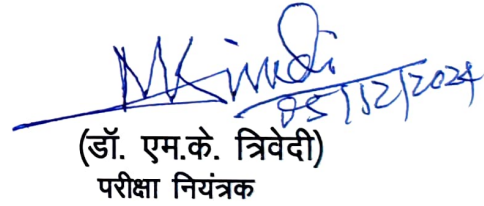 05/12/2024
(डॉ. एम.के. त्रिवेदी)
परीक्षा नियंत्रक